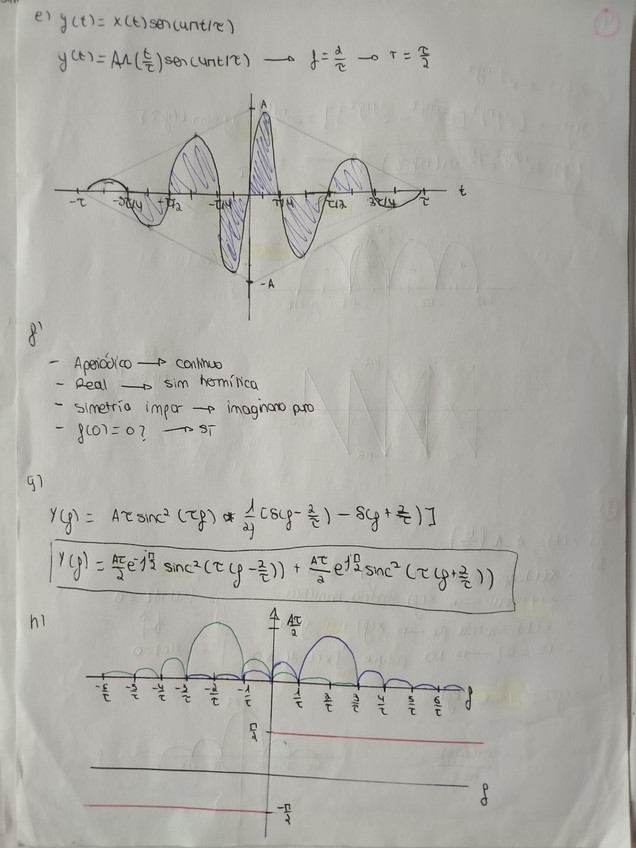 e) y(t) = x(t) sen(4πt/τ)
y(t) = AΛ(t/τ) sen(4πt/τ) → f = 2/τ → T = τ/2
A
-τ -3τ/4 -τ/2 -τ/4 τ/4 τ/2 3τ/4 τ t
-A
f)
- Aperiódico → continuo
- Real → sim hermítica
- simetría impar → imaginario puro
- f(0) = 0? → SÍ
g)
Y(f) = Aτ sinc²(τf) * 1/2j [δ(f - 2/τ) - δ(f + 2/τ)]
Y(f) = Aτ/2 e^-jπ/2 sinc²(τ(f - 2/τ)) + Aτ/2 e^jπ/2 sinc²(τ(f + 2/τ))
h)
Aτ/2
-6/τ -5/τ -4/τ -3/τ -2/τ -1/τ 1/τ 2/τ 3/τ 4/τ 5/τ 6/τ f
π/2
f
-π/2